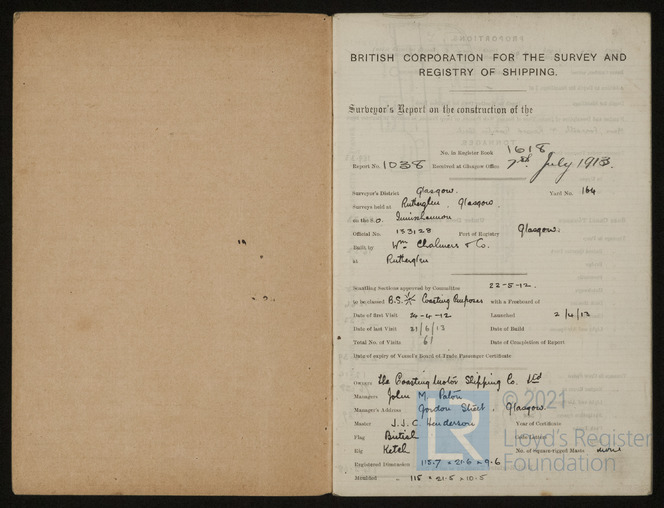 BRITISH CORPORATION FOR THE SURVEY AND
REGISTRY OF SHIPPING.
Surveyor's Report on the construction of the
No. in Register Book 1618
Report No. 1038 Received at Glasgow Office 7th July 1913.
Surveyor's District Glasgow. Yard No. 164
Surveys held at Rutherglen, Glasgow
on the S.O. Innishannon
Official No. 133128 Port of Registry Glasgow.
Built by Wm Chalmers & Co.
at Rutherglen
Scantling Sections approved by Committee 22-5-12.
to be classed B.S. Coasting Purposes with a Freeboard of
Date of first Visit 24-4-12 Launched 2/4/13
Date of last Visit 21/6/13 Date of Build
Total No. of Visits 61 Date of Completion of Report
Date of expiry of Vessel's Board of Trade Passenger Certificate
Owners The Coasting Motor Shipping Co. Ltd
Managers John M. Paton
Manager's Address Gordon Street, Glasgow.
Master J.J.C. Henderson Year of Certificate
Flag British Code Letters
Rig Ketch No. of Square-rigged Masts none
Registered Dimensions 115.7 x 21.6 x 9.6
Moulded 115 x 21.5 x 10.5
LR
© 2021
Lloyd's Register
Foundation